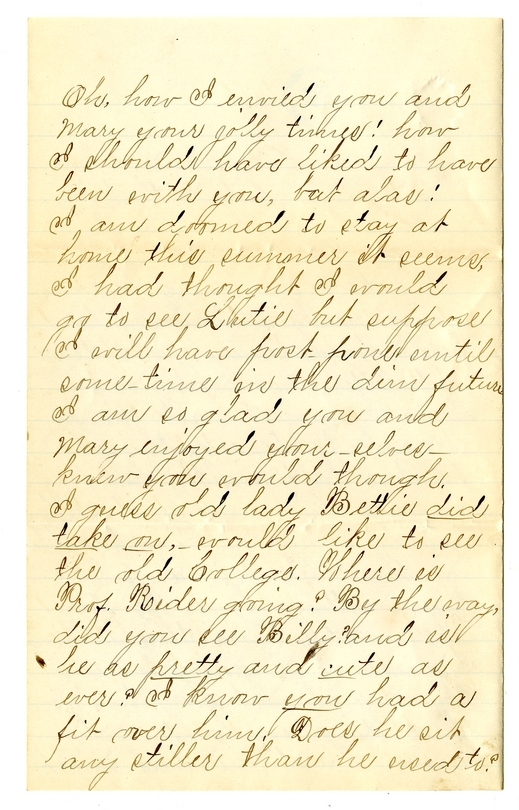 Oh, how I envied you and
Mary your jolly times! how
I should have liked to have
been with you, but alas!
I am doomed to stay at
home this summer it seems,
I had thought I would
go to see Lutie but suppose
I will have post-pone until
some-time in the dim future
I am so glad you and
Mary enjoyed your-selves-
knew you would though.
I guess old lady Bettie did
take on,-would like to see
the old College. Where is
Prof. Rider going? By the way,
did you see Billy? and is
he as pretty and cute as
ever? I know you had a
fit over him! Does he sit
any stiller than he used to?